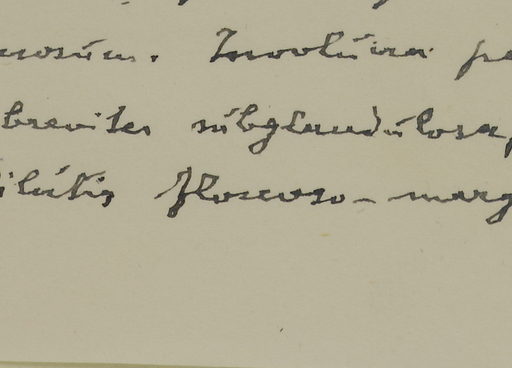 nosum. Involucra pa
breviter subglandulosa,
ilutis floccoso-marg